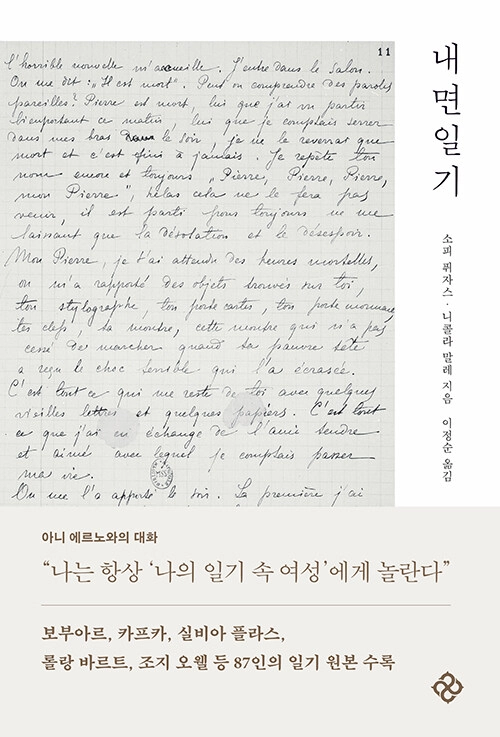 11
l'horrible nouvelle m'accueille. J'entre dans le salon.
On me dit : „Il est mort". Peut on comprendre des paroles
pareilles? Pierre est mort, lui que j'ai vu partir
bien portant ce matin, lui que je comptais serrer
dans mes bras le soir, je ne le reverrai que
mort et c'est fini à jamais. Je repète ton
nom encore et toujours „Pierre, Pierre, Pierre,
mon Pierre", hélas cela ne le fera pas
venir, il est parti pour toujours ne me
laissant que la désolation et le désespoir.
Mon Pierre, je t'ai attendu des heures mortelles,
on m'a rapporté des objets trouvés sur toi,
ton stylographe, ton porte cartes, ton porte monnaie,
tes clefs, ta montre, cette montre qui n'a pas
cessé de marcher quand ta pauvre tête
a reçu le choc terrible qui l'a écrasée.
C'est tout ce qui me reste de toi avec quelques
vieilles lettres et quelques papiers. C'est tout
ce que j'ai en échange de l'ami tendre
et aimé avec lequel je comptais passer
ma vie.
On me l'a apporté le soir. La première j'ai
내면일기
소피 퓌자스·니콜라 말레 지음 이정순 옮김
아니 에르노와의 대화
“나는 항상 ‘나의 일기 속 여성’에게 놀란다”
보부아르, 카프카, 실비아 플라스,
롤랑 바르트, 조지 오웰 등 87인의 일기 원본 수록